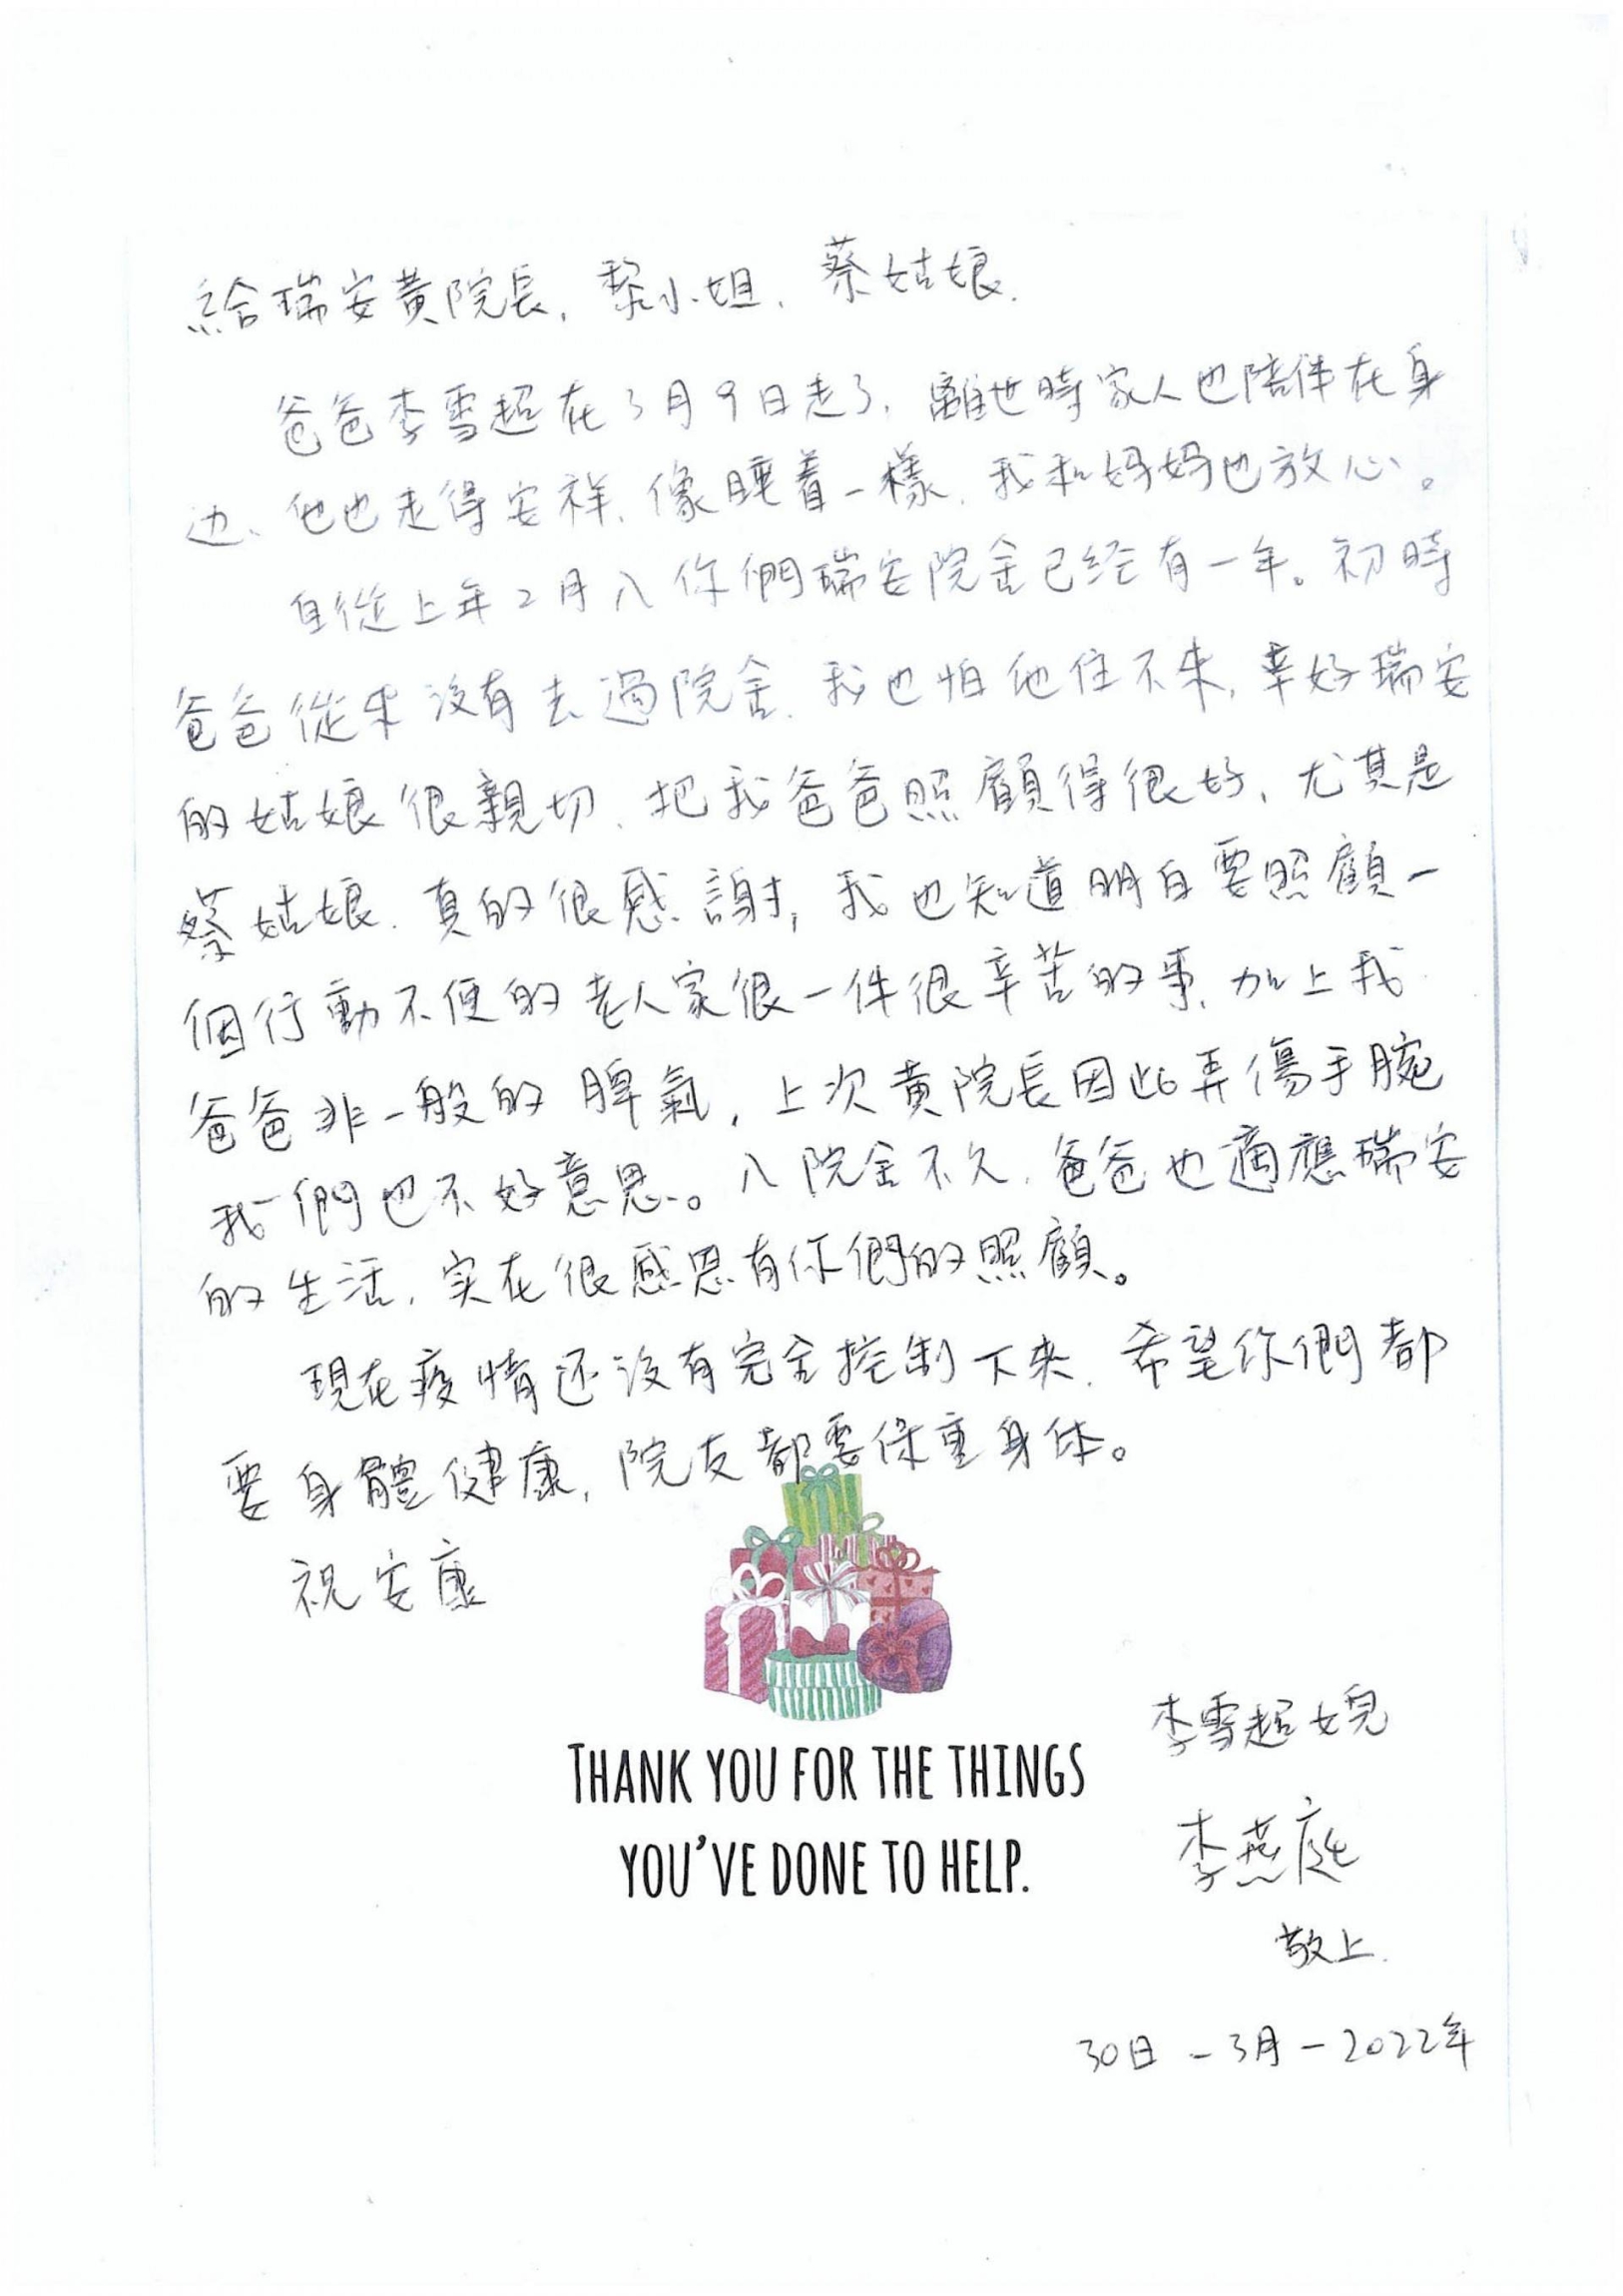 給瑞安黃院長，黎小姐，蔡姑娘.
爸爸李雪超在3月9日走了，離世時家人也陪伴在身
边、他也走得安祥、像睡着一樣，我和妈妈也放心。
自從上年2月入你們瑞安院舍已经有一年。初時
爸爸從来没有去過院舍，我也怕他住不来，幸好瑞安
的姑娘很親切、把我爸爸照顧得很好、尤其是
蔡姑娘. 真的很感謝，我也知道明白要照顧一
個行動不便的老人家很一件很辛苦的事，加上我
爸爸非一般的脾氣，上次黃院長因此弄傷手腕
我們也不好意思。入院舍不久，爸爸也適應瑞安
的生活，实在很感恩有你們的照顧。
現在疫情还没有完全控制下来，希望你們都
要身體健康，院友都要保重身体。
祝安康
李雪超女兒
THANK YOU FOR THE THINGS
YOU'VE DONE TO HELP.
李燕庭
敬上.
30日-3月-2022年